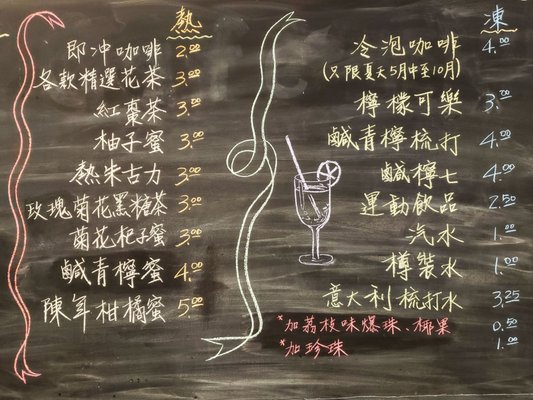 熱
即冲咖啡 2.00
各款精選花茶 3.00
紅棗茶 3.00
柚子蜜 3.00
熱朱古力 3.00
玫瑰菊花黑糖茶 3.00
菊花杞子蜜 3.00
鹹青檸蜜 4.00
陳年柑橘蜜 5.00
凍
冷泡咖啡 4.00
(只限夏天5月中至10月)
檸檬可樂 3.00
鹹青檸梳打 4.00
鹹檸七 4.00
運動飲品 2.50
汽水 1.00
樽裝水 1.00
意大利梳打水 3.25
*加荔枝味爆珠、椰果 0.50
*加珍珠 1.00